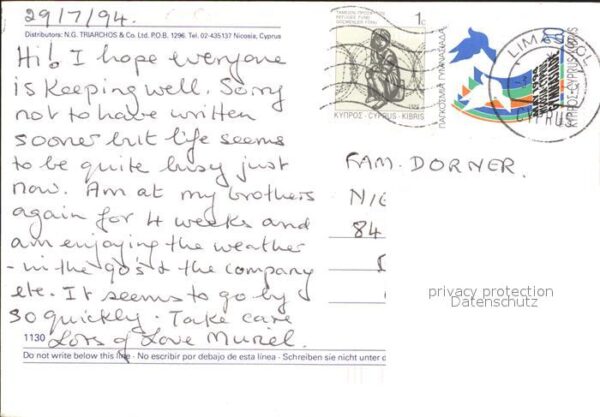 29/7/94.
Distributors: N.G. TRIARCHOS & Co. Ltd. P.O.B. 1296. Tel. 02-435137 Nicosia, Cyprus
Hi! I hope everyone
is keeping well. Sorry
not to have written
sooner but life seems
to be quite busy just
now. Am at my brothers
again for 4 weeks and
am enjoying the weather
- in the 90's & the company
etc. It seems to go by
so quickly. Take care
1130 Lots of Love Muriel.
Do not write below this line · No escribir por debajo de esta línea · Schreiben sie nicht unter d
REFUGEE FUND
1c
ΚΥΠΡΟΣ · CYPRUS · KIBRIS
ΠΑΓΚΟΣΜΙΑ ΓΥΜΝΑΣΙΑΔΑ
ΚΥΠΡΟΣ-CYPRUS
LIMASSOL
CYPRUS
FAM. DORNER.
NIE
84
privacy protection
Datenschutz